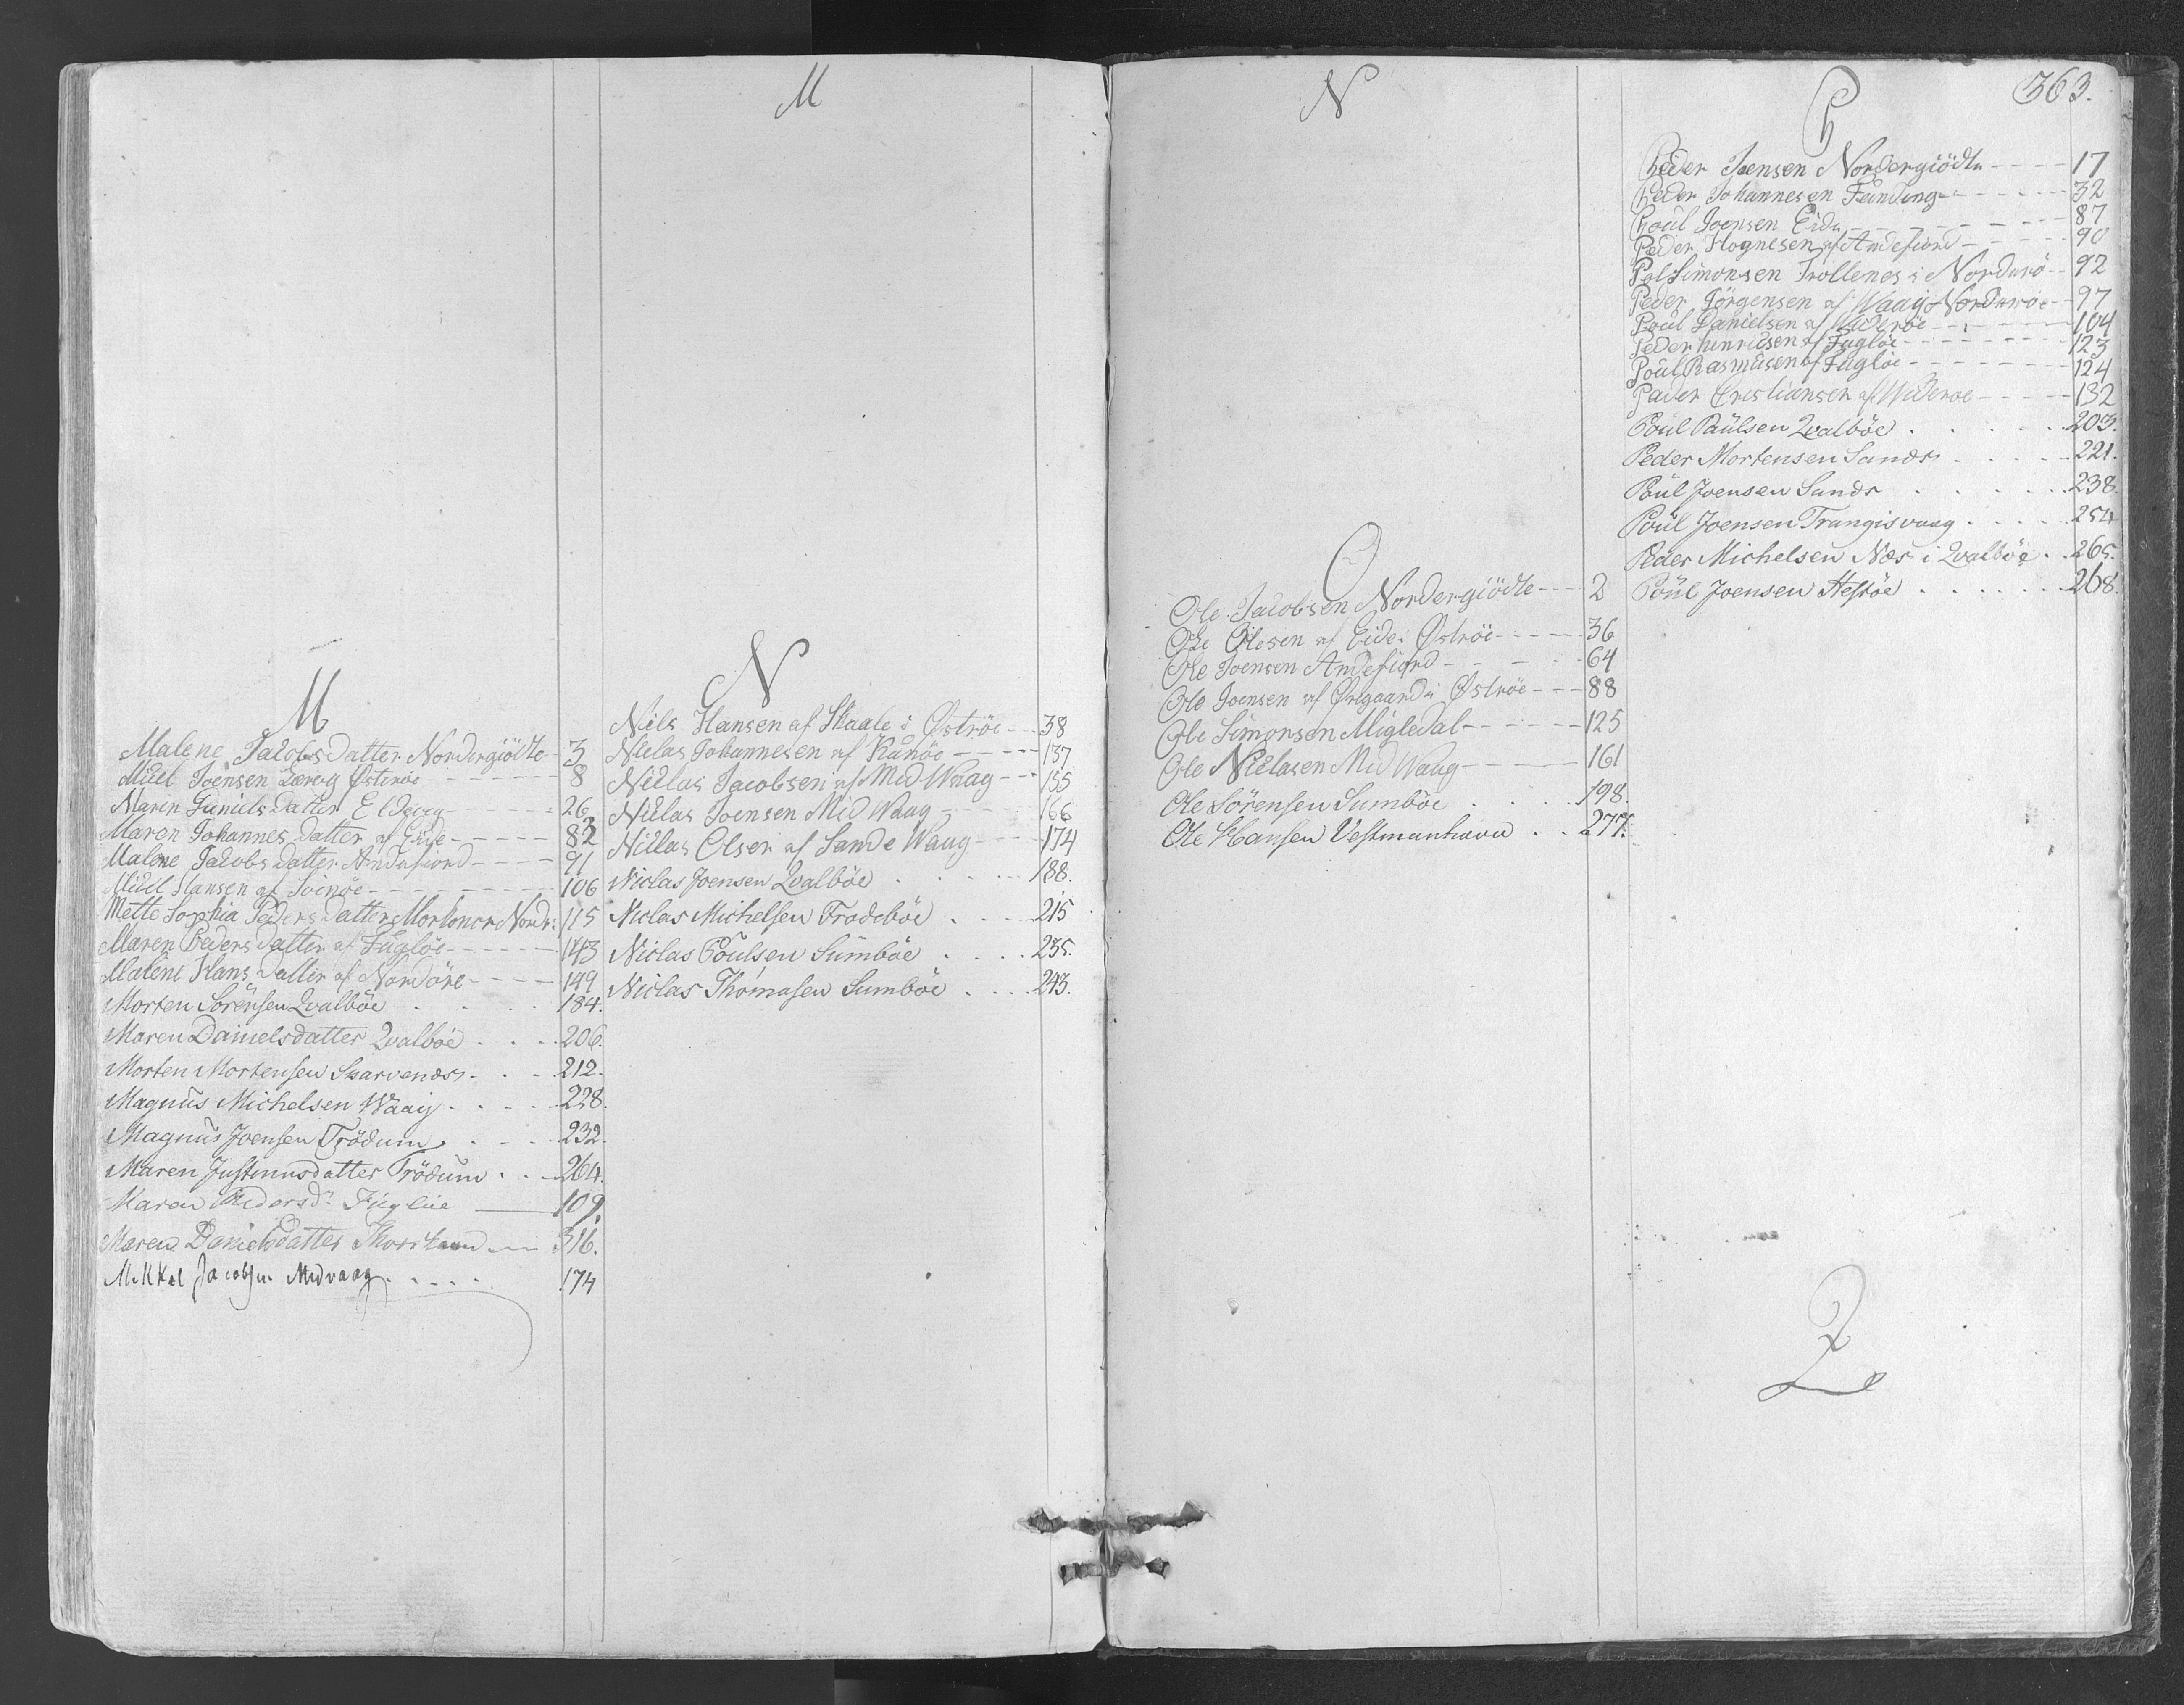 M
M
Malene Jacobs Datter Nordergiödte - 3
Micel Joensen Lærvig Østerøe - 8
Maren Daniels Datter Eldevig - 26
Maren Johannes Datter af Eide - 82
Malene Jacobs Datter Andefiord - 91
Micel Hansen af Svinøe - 106
Mette Sophia Peders Datter Nordr: 115
Maren Peders Datter af Fugløe - 143
Malene Hans Datter af Nordöre - 149
Morten Sörensen Qvalböe . 184.
Maren Danielsdatter Qvalböe . . . 206.
Morten Mortensen Skarvenæs . . . 212.
Magnus Michelsen Waag . . . . 228.
Magnus Joensen Frödum . . . . 232.
Maren Justinusdatter Frödum . . . 264.
Maren Pedersdr Fugløe — 109.
Maren Danielsdatter Thorshavn — 316.
Mikkel Jacobsen Midvaag . . . . 174
N
Niels Hansen af Skaale i Øströe - 38
Niclas Johannesen af Kunöe - 137
Niclas Jacobsen af Mid Waag - 155
Niclas Joensen Mid Waag - 166
Niclas Olsen af Sande Waag - 174
Niclas Joensen Qvalböe . . . . 188.
Niclas Michelsen Frodeböe . . . 215
Niclas Poulsen Sumböe . . . . 235.
Niclas Thomasen Sumböe . . . 243.
N
O
Ole Jacobsen Nordergiödte - 2
Ole Olesen af Eide i Øströe - 36
Ole Joensen Andefiord - 64
Ole Joensen af Ørgaard i Øströe - 88
Ole Simonsen Migledal - 125
Ole Niclasen Mid Waag — 161
Ole Sörensen Sumböe . . . . 198.
Ole Hansen Vestmanhavn . . 277.
363.
P
Peder Joensen Nordergiödte - 17
Peder Johannesen Funding - 32
Poul Joensen Eide - 87
Peder Hognesen af Andefiord - 90
Pal Simonsen Tröllenes i Norderö - 92
Peder Jörgensen af Waag Norderöe - 97
Poul Danielsen af Wideröe - 104
Peder Henricsen af Fuglöe - 123
Poul Rasmusen af Fuglöe - 124
Pader Cristiansen af Wideroe - 132
Poul Paulsen Qvalböe . . . . 203.
Peder Mortensen Sands . . . . 221.
Poul Joensen Sands . . . . 238.
Poul Joensen Trangisvaag . . . . 254
Peder Michelsen Næs i Qvalböe . . 265.
Poul Joensen Hestöe . . . . . 268.
Q